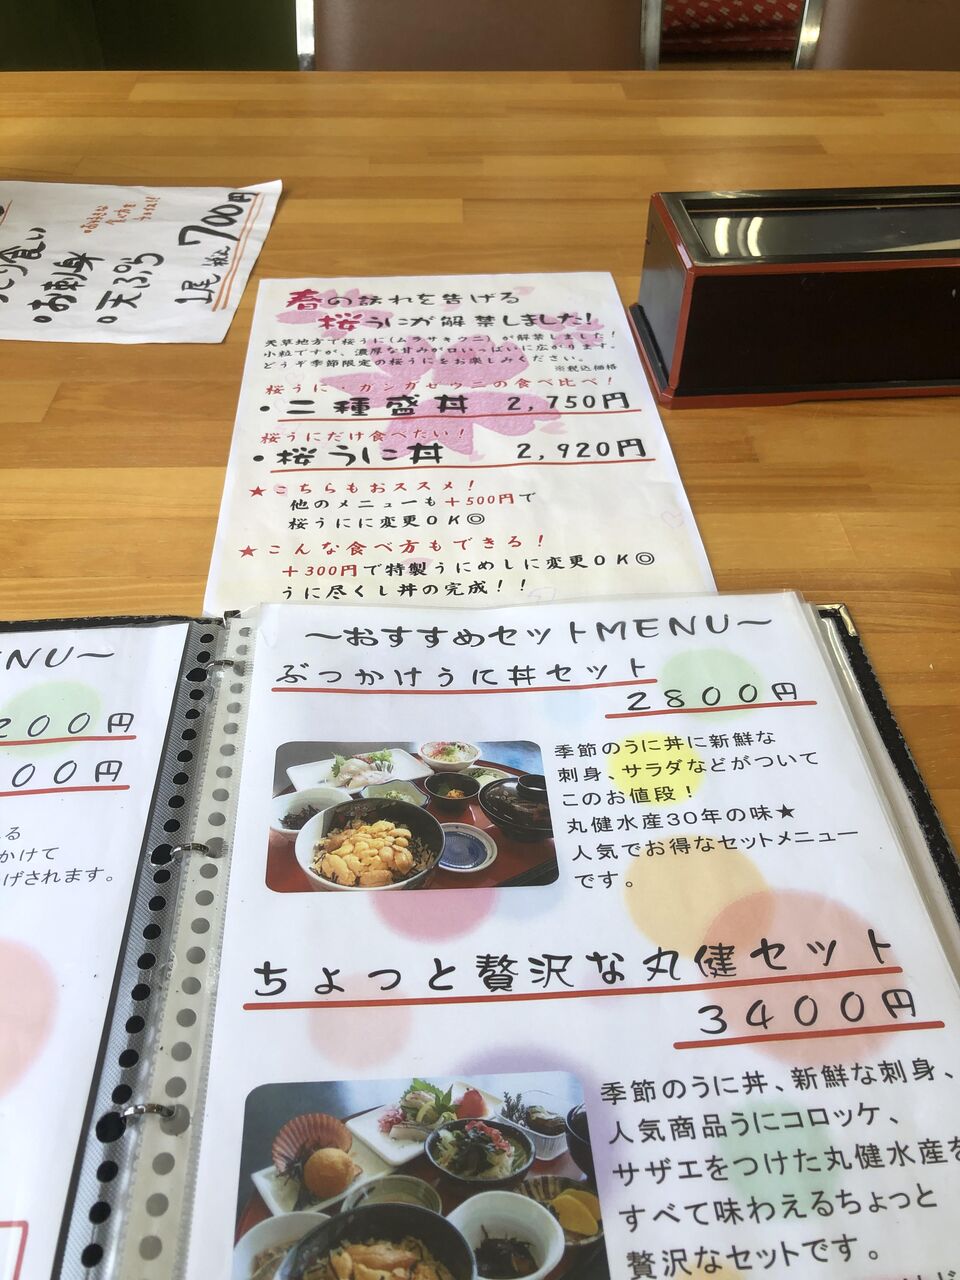 お刺身
・天ぷら
1尾 税込 700円
春の訪れを告げる
桜うにが解禁しました！
天草地方で桜うに(ムラサキウニ)が解禁しました！
小粒ですが、濃厚な甘みが口いっぱいに広がります。
どうぞ季節限定の桜うにをお楽しみください。
※税込価格
桜うに・ガンガゼウニの食べ比べ！
・二種盛丼 2,750円
桜うにだけ食べたい！
・桜うに丼 2,920円
★こちらもおススメ！
他のメニューも＋500円で
桜うにに変更OK◎
★こんな食べ方もできる！
＋300円で特製うにめしに変更OK◎
うに尽くし丼の完成！！
ENU～
200円
00円
る
かけて
げされます。
～おすすめセットMENU～
ぶっかけうに丼セット
2800円
季節のうに丼に新鮮な
刺身、サラダなどがついて
このお値段！
丸健水産30年の味★
人気でお得なセットメニュー
です。
ちょっと贅沢な丸健セット
3400円
季節のうに丼、新鮮な刺身、
人気商品うにコロッケ、
サザエをつけた丸健水産を
すべて味わえるちょっと
贅沢なセットです。